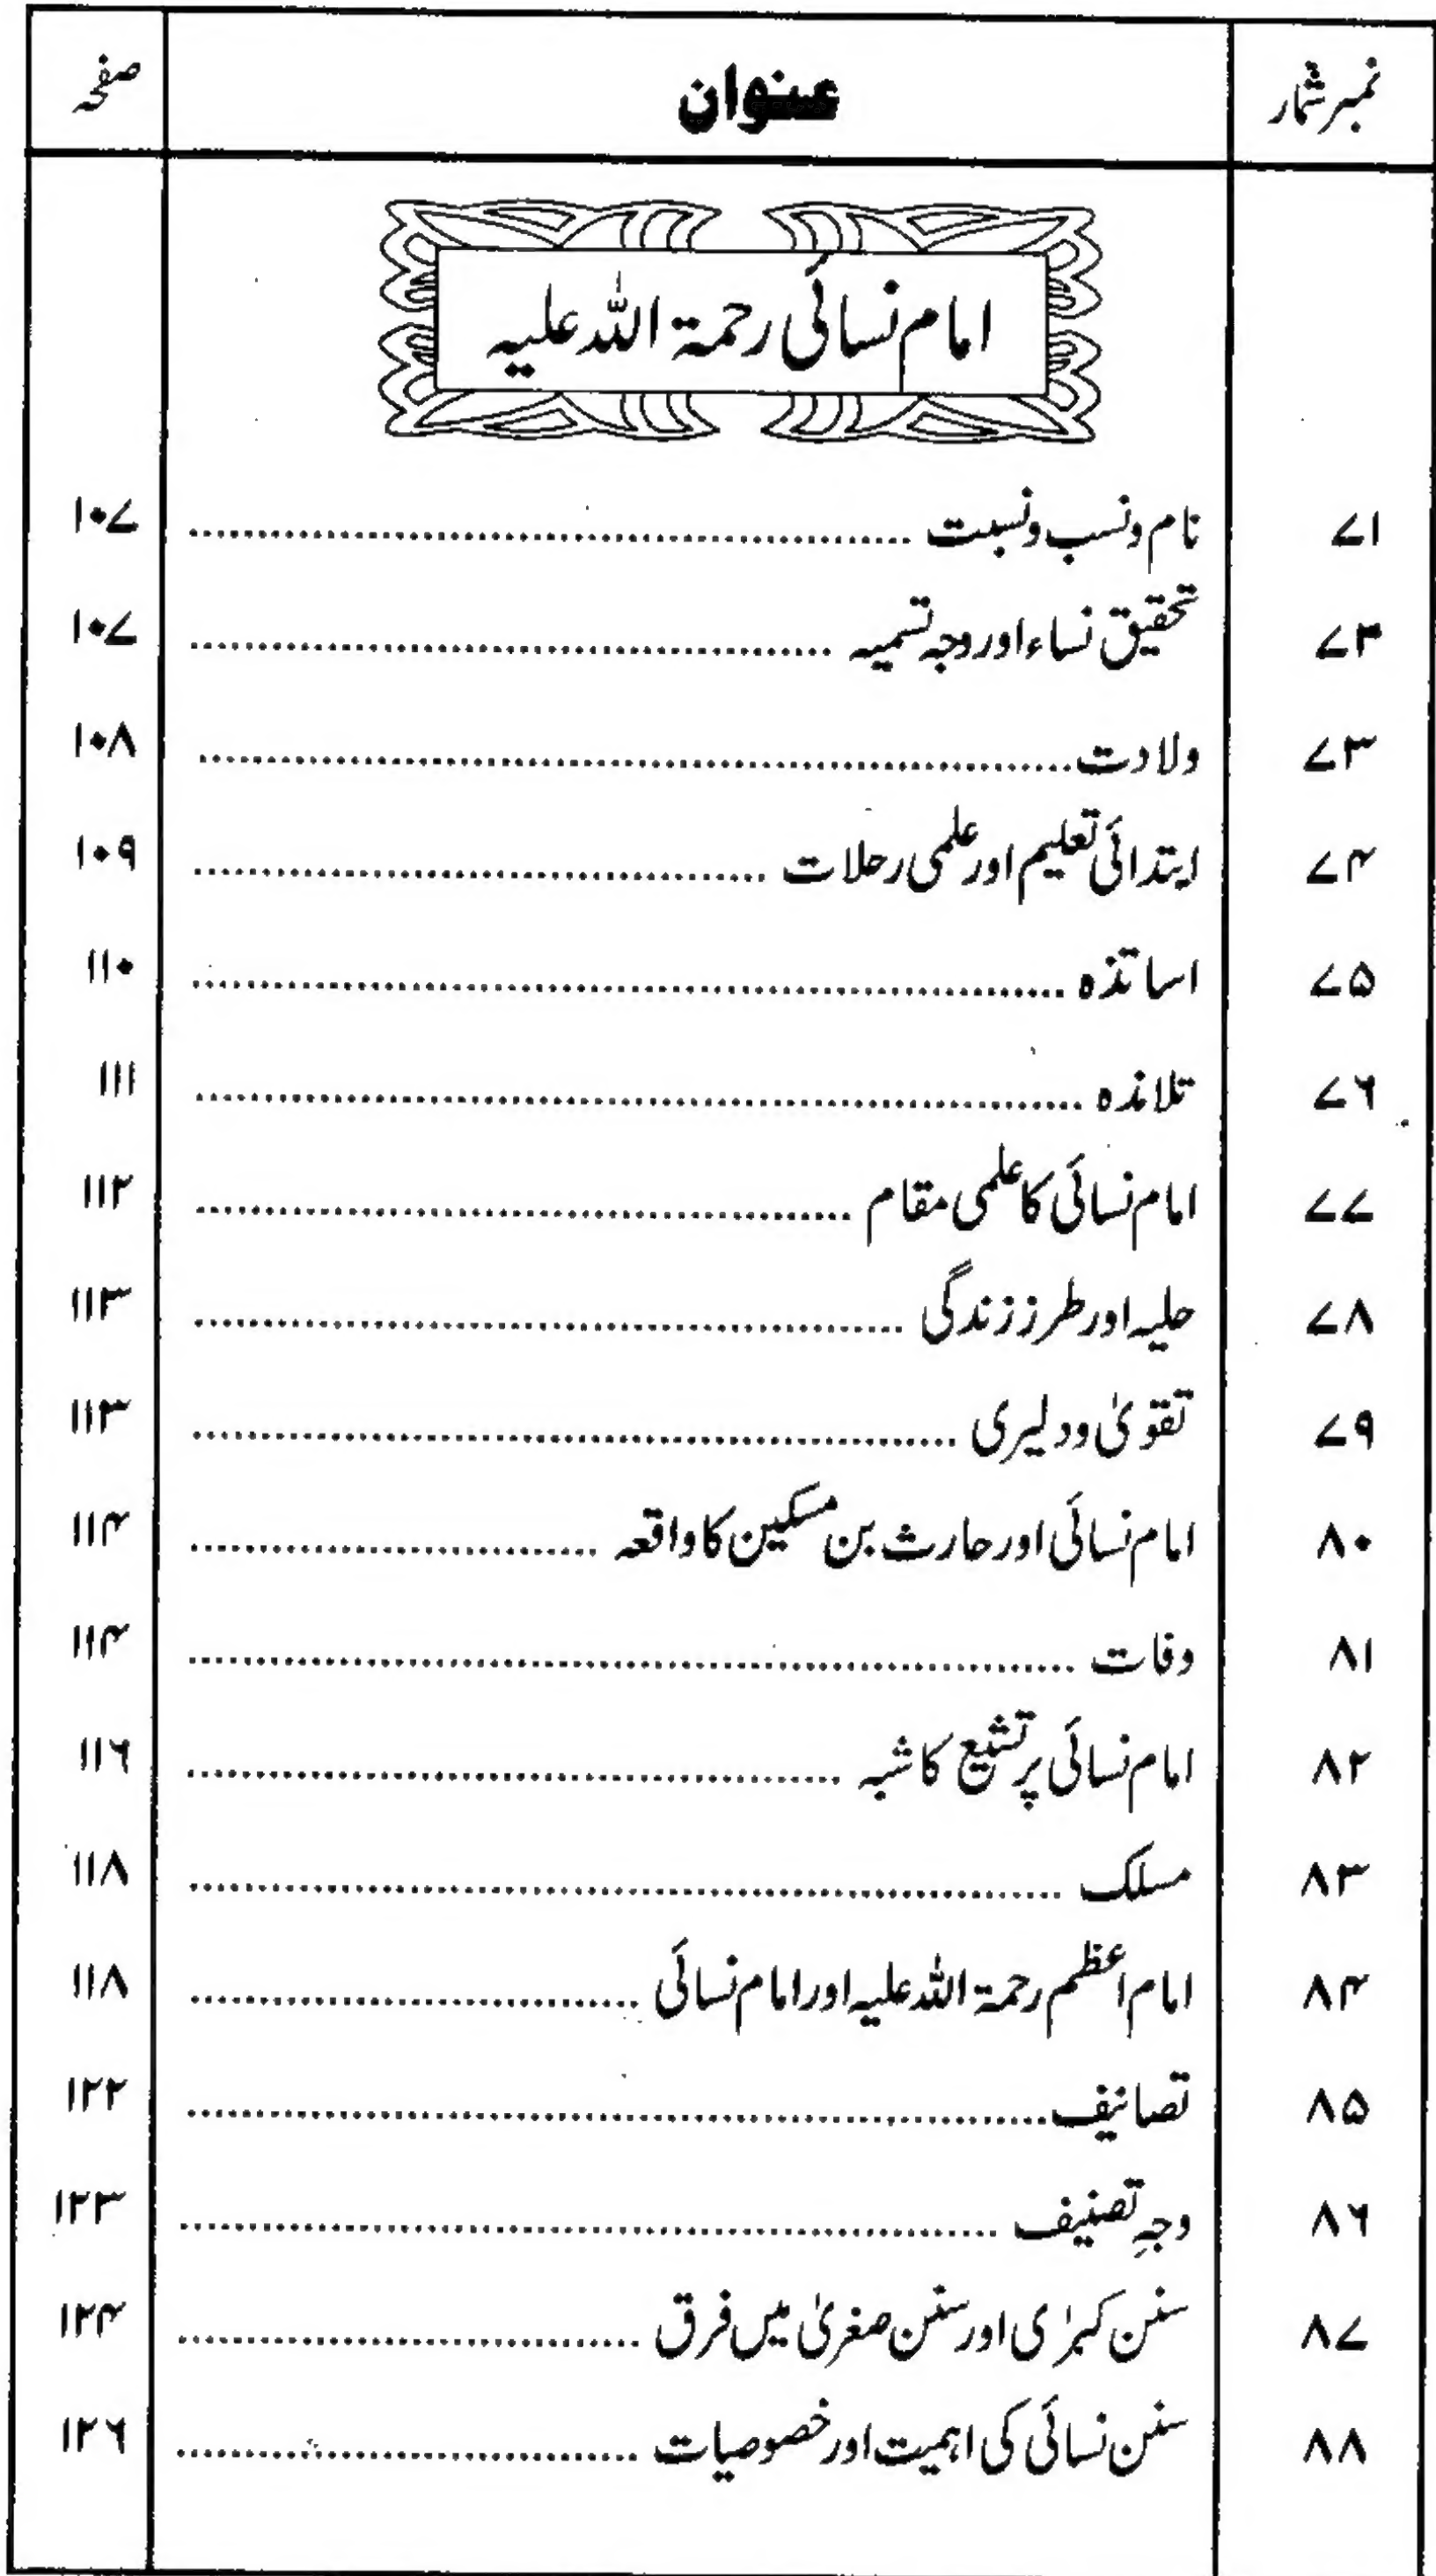 نمبر شمار عنوان صفحہ
امام نسائی رحمۃ اللہ علیہ
۷۱ نام ونسب ونسبت ۱۰۷
۷۲ تحقیق نساء اور وجہ تسمیہ ۱۰۷
۷۳ ولادت ۱۰۸
۷۴ ابتدائی تعلیم اور علمی رحلات ۱۰۹
۷۵ اساتذہ ۱۱۰
۷۶ تلامذہ ۱۱۱
۷۷ امام نسائی کا علمی مقام ۱۱۲
۷۸ حلیہ اور طرز زندگی ۱۱۳
۷۹ تقویٰ ودلیری ۱۱۳
۸۰ امام نسائی اور حارث بن مسکین کا واقعہ ۱۱۴
۸۱ وفات ۱۱۴
۸۲ امام نسائی پر تشیع کا شبہ ۱۱۶
۸۳ مسلک ۱۱۸
۸۴ امام اعظم رحمۃ اللہ علیہ اور امام نسائی ۱۱۸
۸۵ تصانیف ۱۲۲
۸۶ وجہِ تصنیف ۱۲۳
۸۷ سنن کبرٰی اور سنن صغریٰ میں فرق ۱۲۴
۸۸ سنن نسائی کی اہمیت اور خصوصیات ۱۲۶